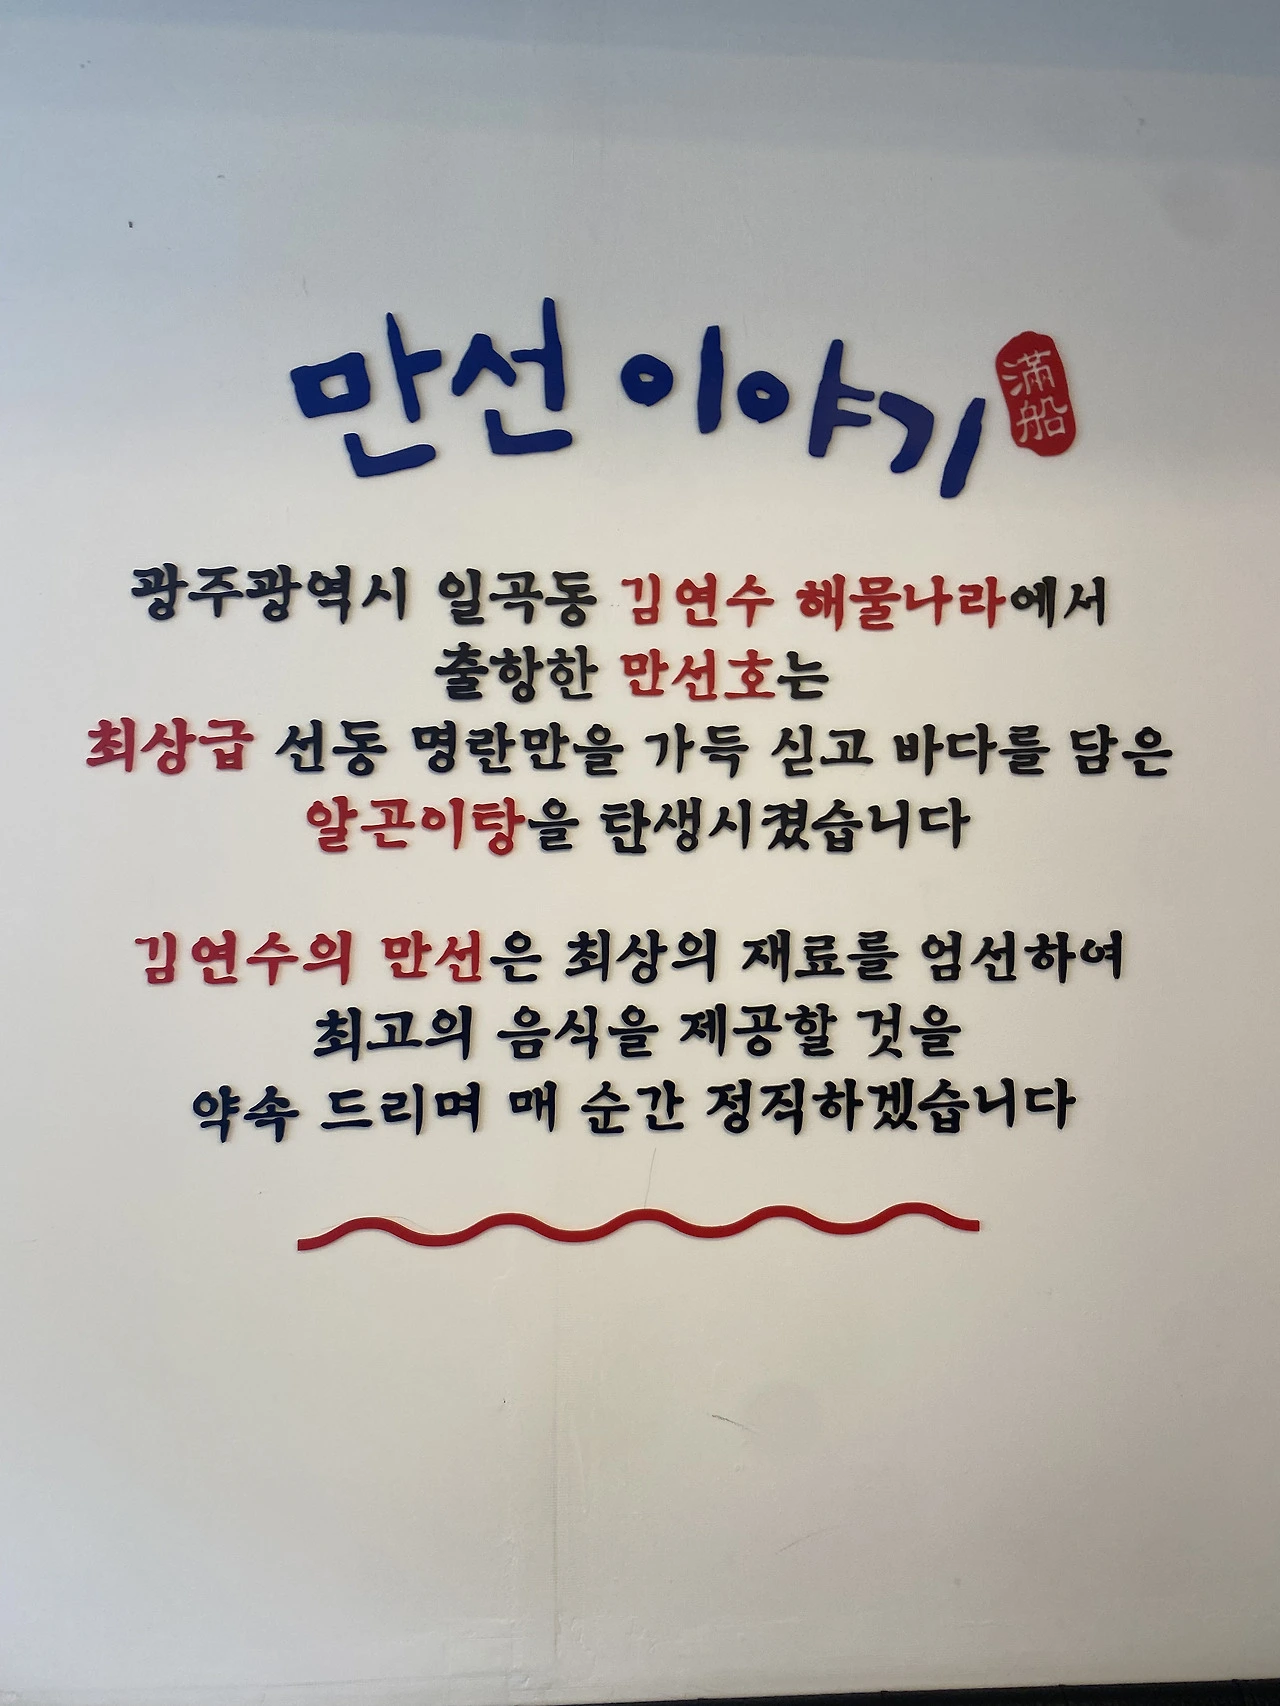 만선 이야기
滿船
광주광역시 일곡동 김연수 해물나라에서
출항한 만선호는
최상급 선동 명란만을 가득 싣고 바다를 담은
알곤이탕을 탄생시켰습니다
김연수의 만선은 최상의 재료를 엄선하여
최고의 음식을 제공할 것을
약속 드리며 매 순간 정직하겠습니다